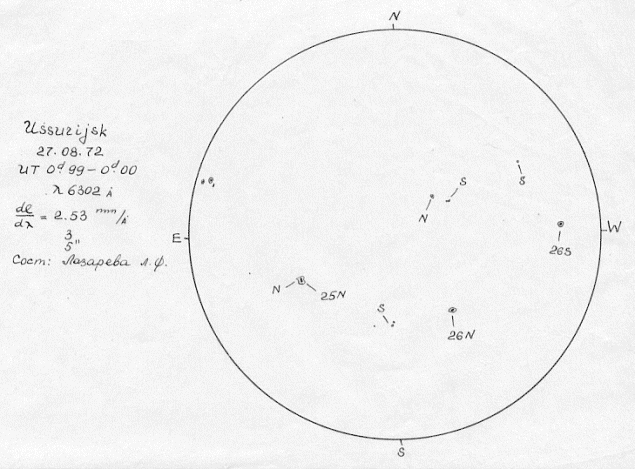 N
Ussurijsk
27.08.72
UT 0ᵈ99-0ᵈ00
λ 6302 Å
dl/dλ = 2.53 mm/Å
3
5"
Сост: Лазарева Л.Ф.
S
S
N
W
26S
E
N
25N
S
26N
S